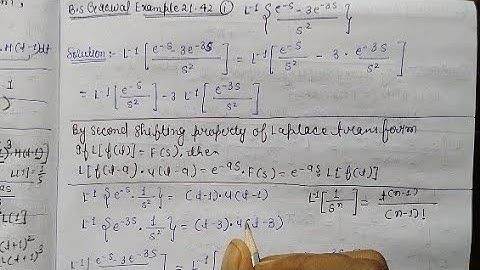 B.S Grewal Example 21.42 (i) L⁻¹ { e^-s - 3e^-3s / s² }
Solution:- L⁻¹ [ e^-s - 3e^-3s / s² ] = L⁻¹ [ e^-s / s² - 3 · e^-3s / s² ]
= L⁻¹ [ e^-s / s² ] - 3 L⁻¹ [ e^-3s / s² ]
By Second Shifting property of Laplace transform
If L[f(t)] = F(s), then
L[f(t-a) · u(t-a)] = e^-as · F(s) = e^-as L[f(t)]
L⁻¹ { e^-s · 1/s² } = (t-1) · u(t-1) L⁻¹ [ 1/sⁿ ] = t^(n-1) / (n-1)!
L⁻¹ { e^-3s · 1/s² } = (t-3) · u(t-3)